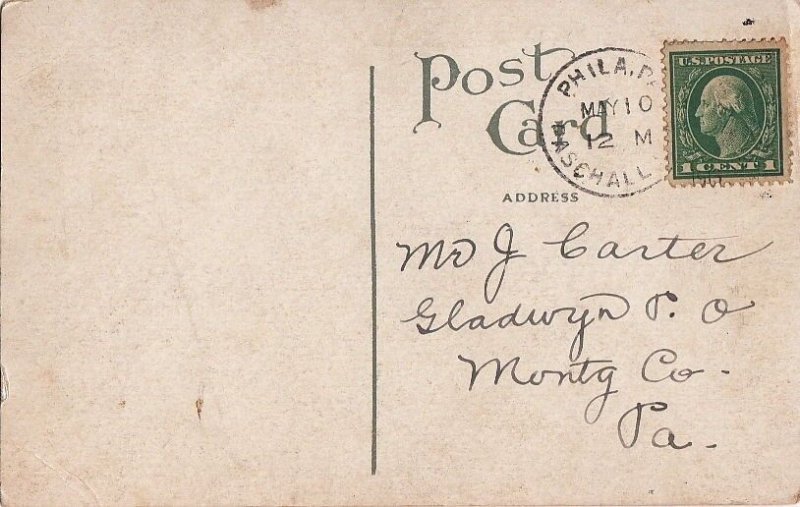 Post
Card
ADDRESS
PHILA, PA
MAY 10
12 M
PASCHALL
U.S. POSTAGE
1 CENT 1
Mr J Carter
Gladwyn P. O
Montg Co.
Pa.